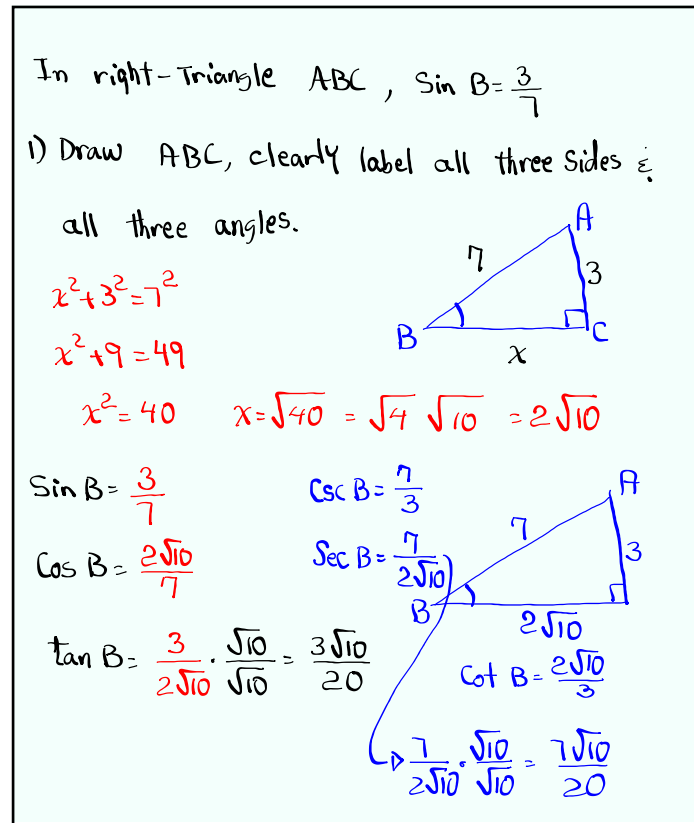 In right-Triangle ABC, Sin B = 3/7
1) Draw ABC, clearly label all three sides &
all three angles.
A
7
3
B
C
x
x²+3²=7²
x²+9=49
x²=40 x=√40 = √4 √10 = 2√10
Sin B = 3/7
Csc B = 7/3
A
7
3
B
2√10
Cos B = 2√10/7
Sec B = 7/2√10
tan B = 3/2√10 · √10/√10 = 3√10/20
Cot B = 2√10/3
7/2√10 · √10/√10 = 7√10/20